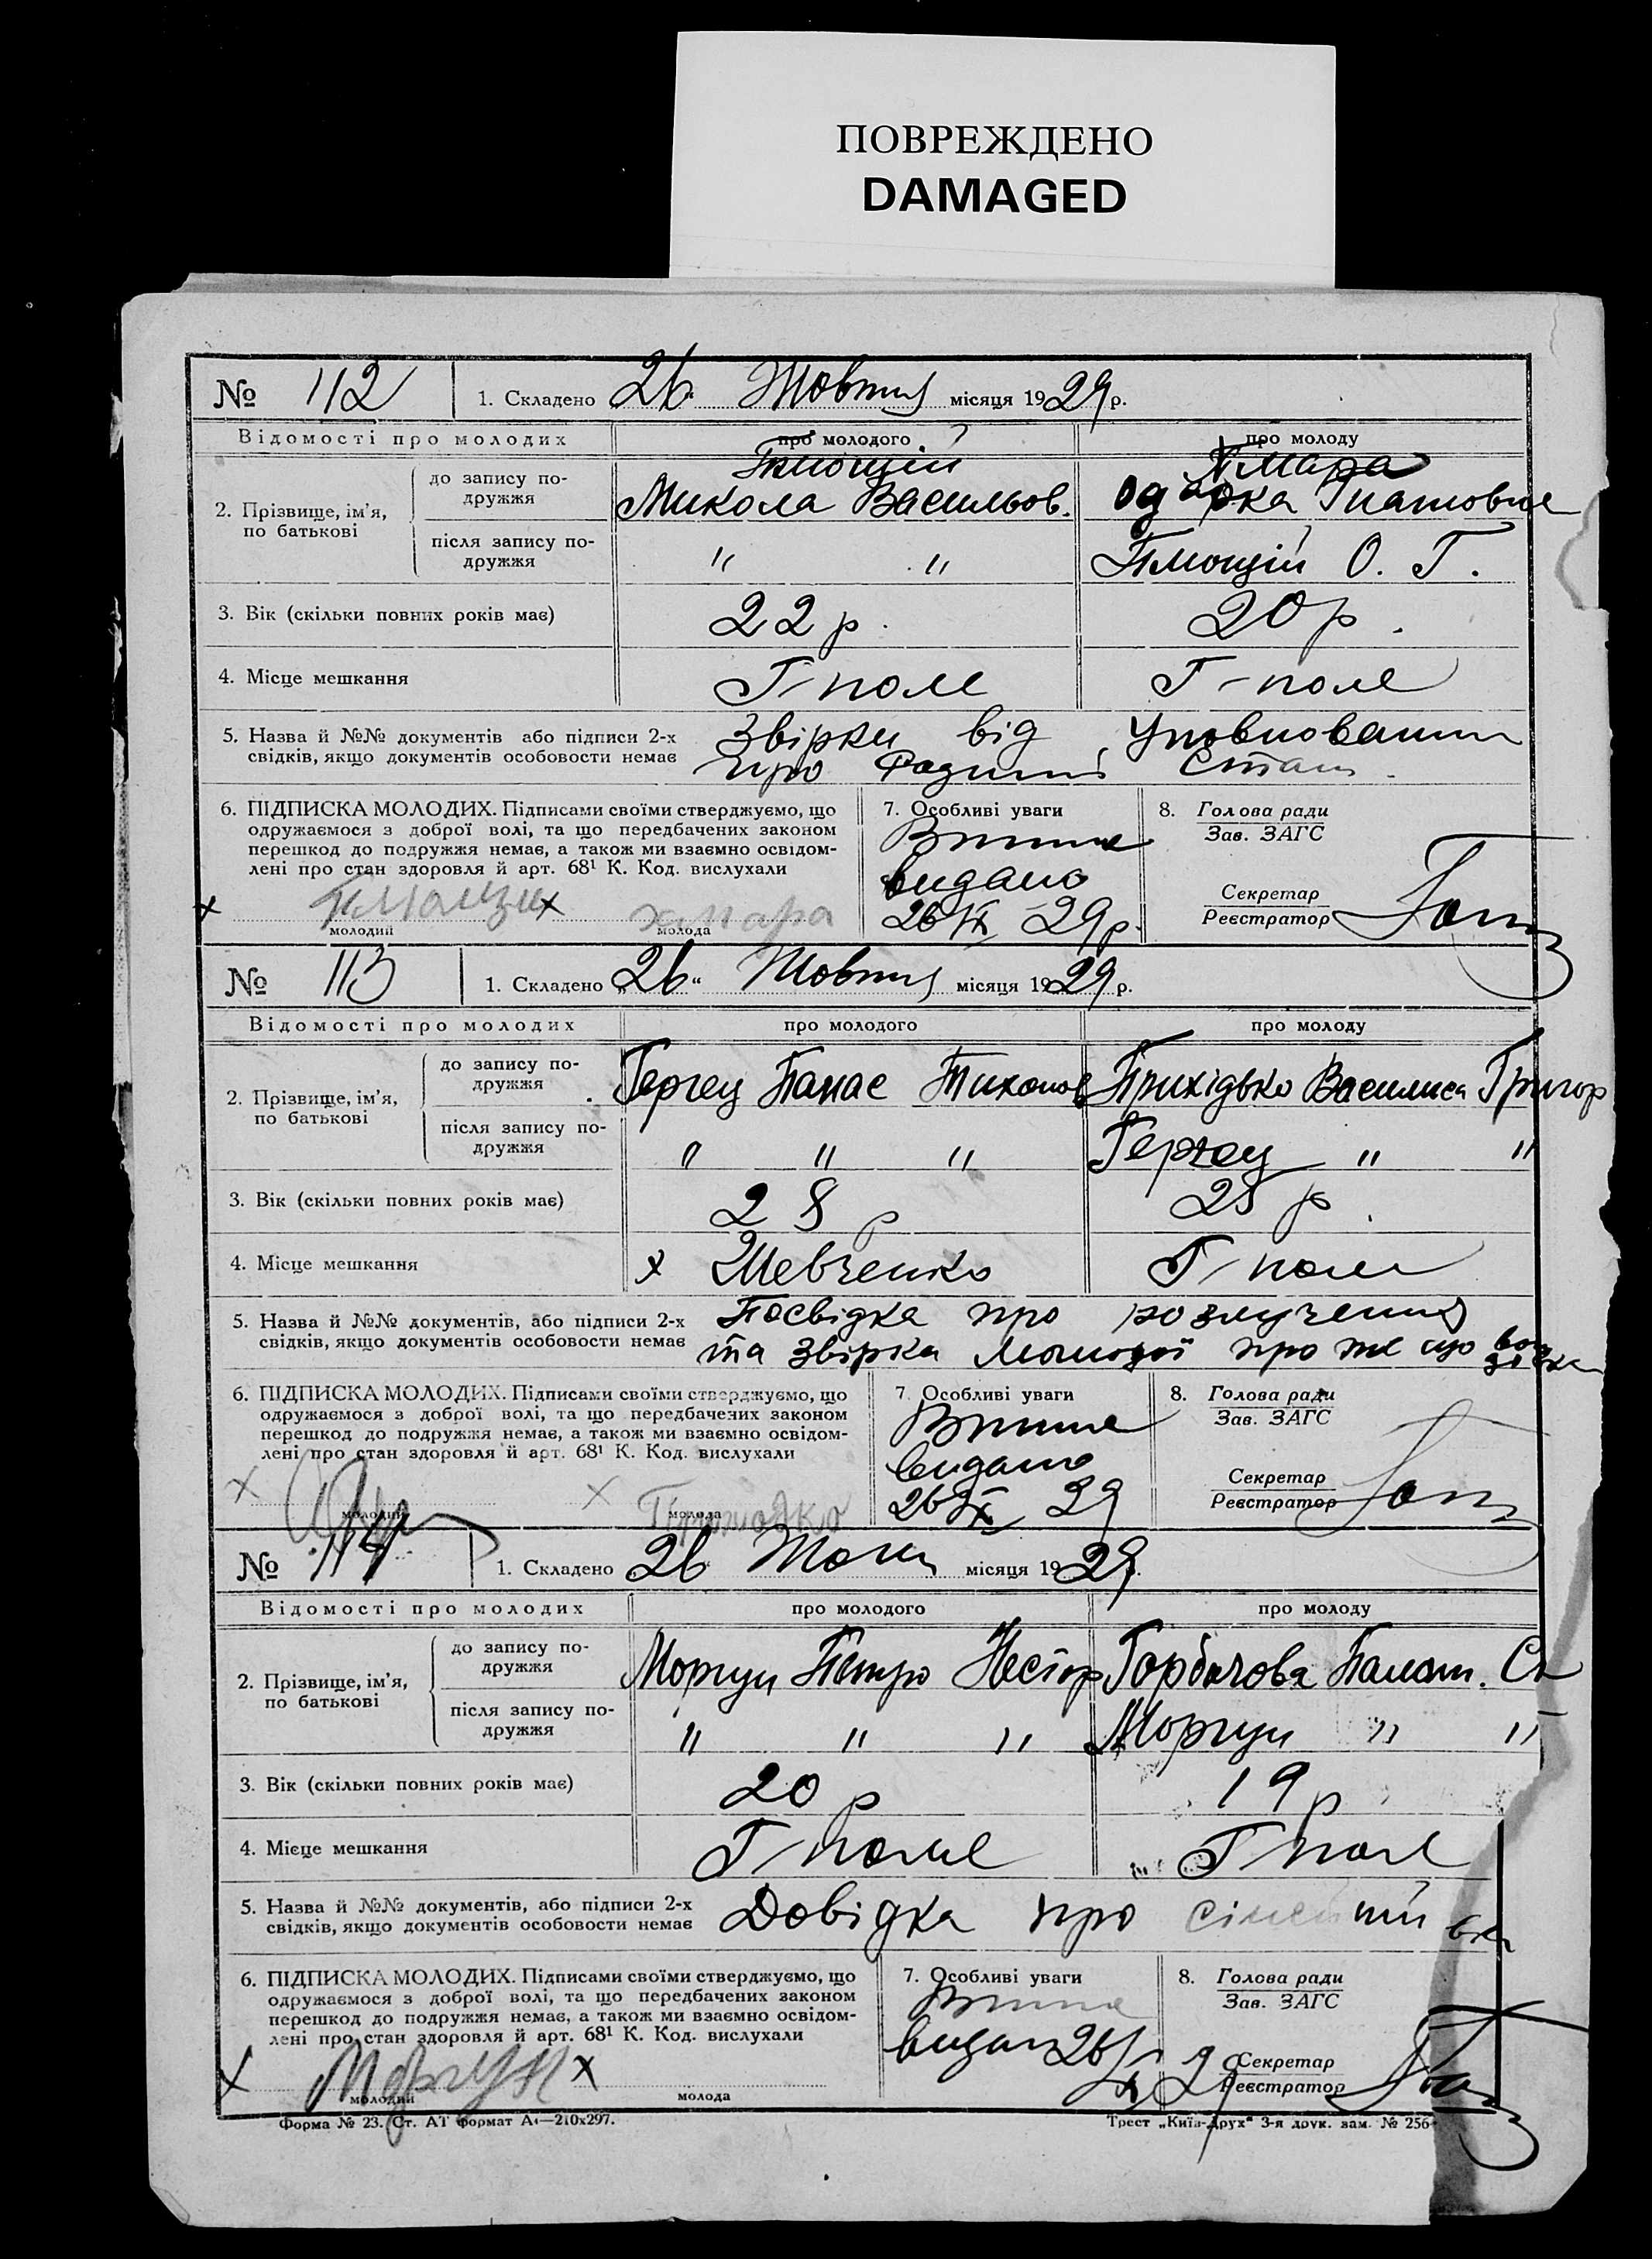 ПОВРЕЖДЕНО
DAMAGED
№ 112 1. Складено 26 " Жовтня місяця 1929 р.
Відомості про молодих про молодого про молоду
2. Прізвище, ім'я, по батькові
до запису подружжя Плющій Хмара
Микола Васильов. Одарка Гнатовна
після запису подружжя " " Плющій О. Г.
3. Вік (скільки повних років має) 22 р. 20 р.
4. Місце мешкання Г-поле Г-поле
5. Назва й №№ документів або підписи 2-х Звірки від
свідків, якщо документів особовости немає про Стан
6. ПІДПИСКА МОЛОДИХ. Підписами своїми стверджуємо, що
одружаємося з доброї волі, та що передбачених законом
перешкод до подружжя немає, а також ми взаємно освідом-
лені про стан здоровля й арт. 68¹ К. Код. вислухали
х х хмара
молодий молода
7. Особливі уваги
видано
26/X 29 р.
8. Голова ради
Зав. ЗАГС
Секретар
Реєстратор
№ 113 1. Складено „26" Жовтня місяця 1929 р.
Відомості про молодих про молодого про молоду
2. Прізвище, ім'я, по батькові
до запису подружжя Гергец Панас Тихонов Прихідько Василиса Григор
після запису подружжя " " " Гергец " "
3. Вік (скільки повних років має) 28 р 25 р.
4. Місце мешкання х Шевченко Г-поле
5. Назва й №№ документів, або підписи 2-х Посвідка про розлучення
свідків, якщо документів особовости немає та Звірка Молодої про те що
6. ПІДПИСКА МОЛОДИХ. Підписами своїми стверджуємо, що
одружаємося з доброї волі, та що передбачених законом
перешкод до подружжя немає, а також ми взаємно освідом-
лені про стан здоровля й арт. 68¹ К. Код. вислухали
х х
молодий молода
7. Особливі уваги
видано
26/X 29
8. Голова ради
Зав. ЗАГС
Секретар
Реєстратор
№ 114 1. Складено 26 " місяця 1929.
Відомості про молодих про молодого про молоду
2. Прізвище, ім'я, по батькові
до запису подружжя Моргун Петро Нестор Горбачова Палаг. Ст
після запису подружжя " " " Моргун " "
3. Вік (скільки повних років має) 20 р 19 р
4. Місце мешкання Г-поле Г-поле
5. Назва й №№ документів, або підписи 2-х Довідка про
свідків, якщо документів особовости немає
6. ПІДПИСКА МОЛОДИХ. Підписами своїми стверджуємо, що
одружаємося з доброї волі, та що передбачених законом
перешкод до подружжя немає, а також ми взаємно освідом-
лені про стан здоровля й арт. 68¹ К. Код. вислухали
х Моргун х
молодий молода
7. Особливі уваги
26/X 29
8. Голова ради
Зав. ЗАГС
Секретар
Реєстратор
Форма № 23. Ст. АТ формат А4—210х297. Трест „Київ-Друк" 3-я друк. зам. № 256